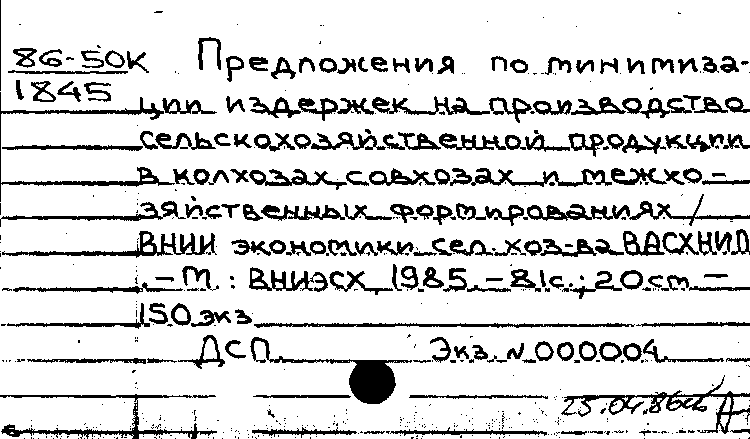 86-50К Предложения по минимиза-
1845 ции издержек на производство
сельскохозяйственной продукции
в колхозах, совхозах и межхо-
зяйственных формированиях /
ВНИИ экономики сел. хоз-ва ВАСХНИЛ
.-М.: ВНИЭСХ, 1985.-81с.; 20см.-
150 экз
ДСП. Экз. N 000004.
25.04.86